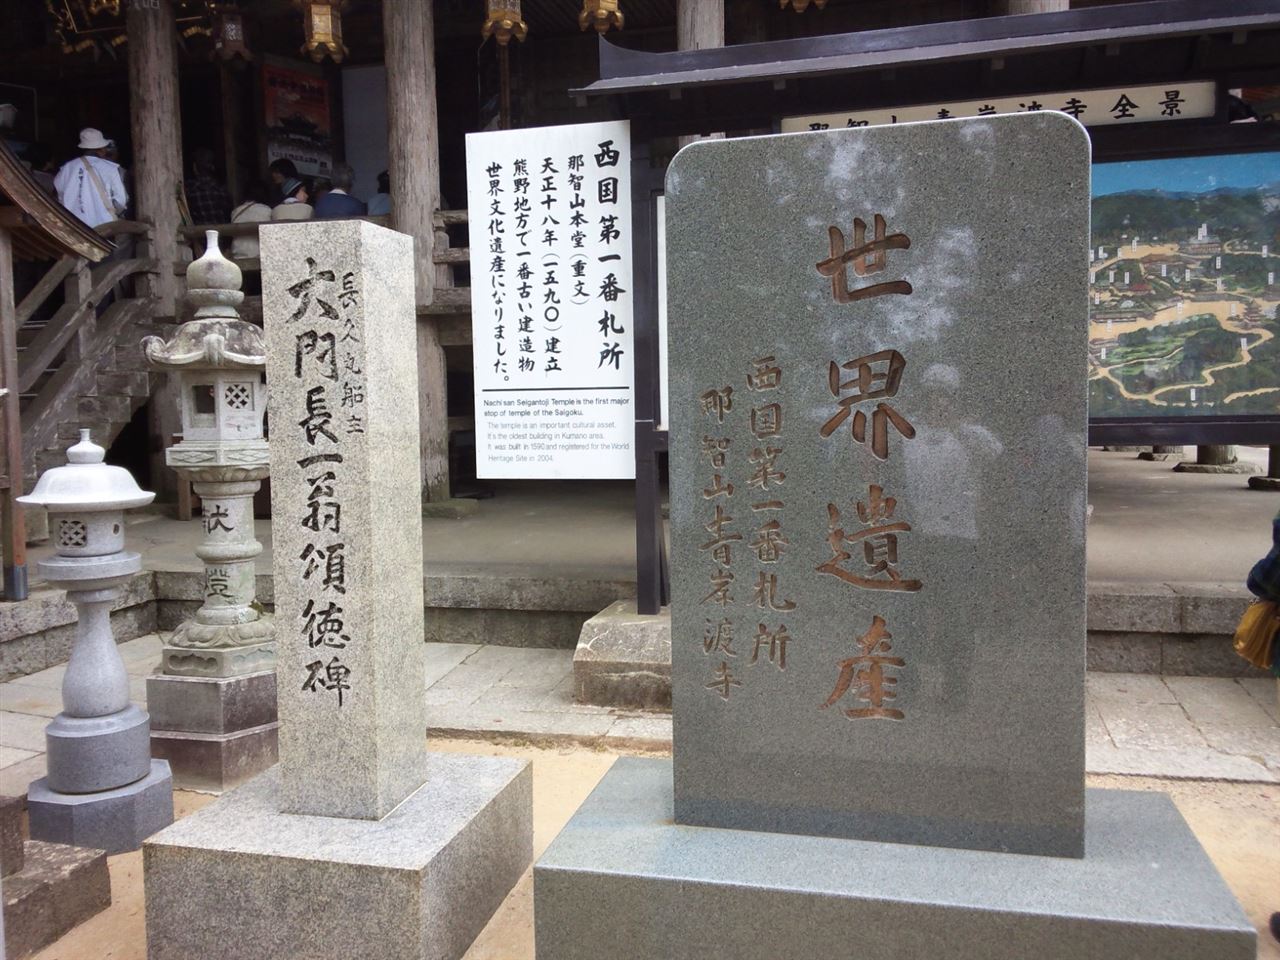 世界遺産
西国第一番札所
那智山青岸渡寺
長久丸船主
大門長一翁頌徳碑
西国第一番札所
那智山本堂(重文)
天正十八年(一五九〇)建立
熊野地方で一番古い建造物
世界文化遺産になりました。
Nachi san Seigantoji Temple is the first major
stop of temple of the Saigoku.
The temple is an important cultural asset.
It's the oldest building in Kumano area.
It was built in 1590 and registered for the World
Heritage Site in 2004.
那智山青岸渡寺全景